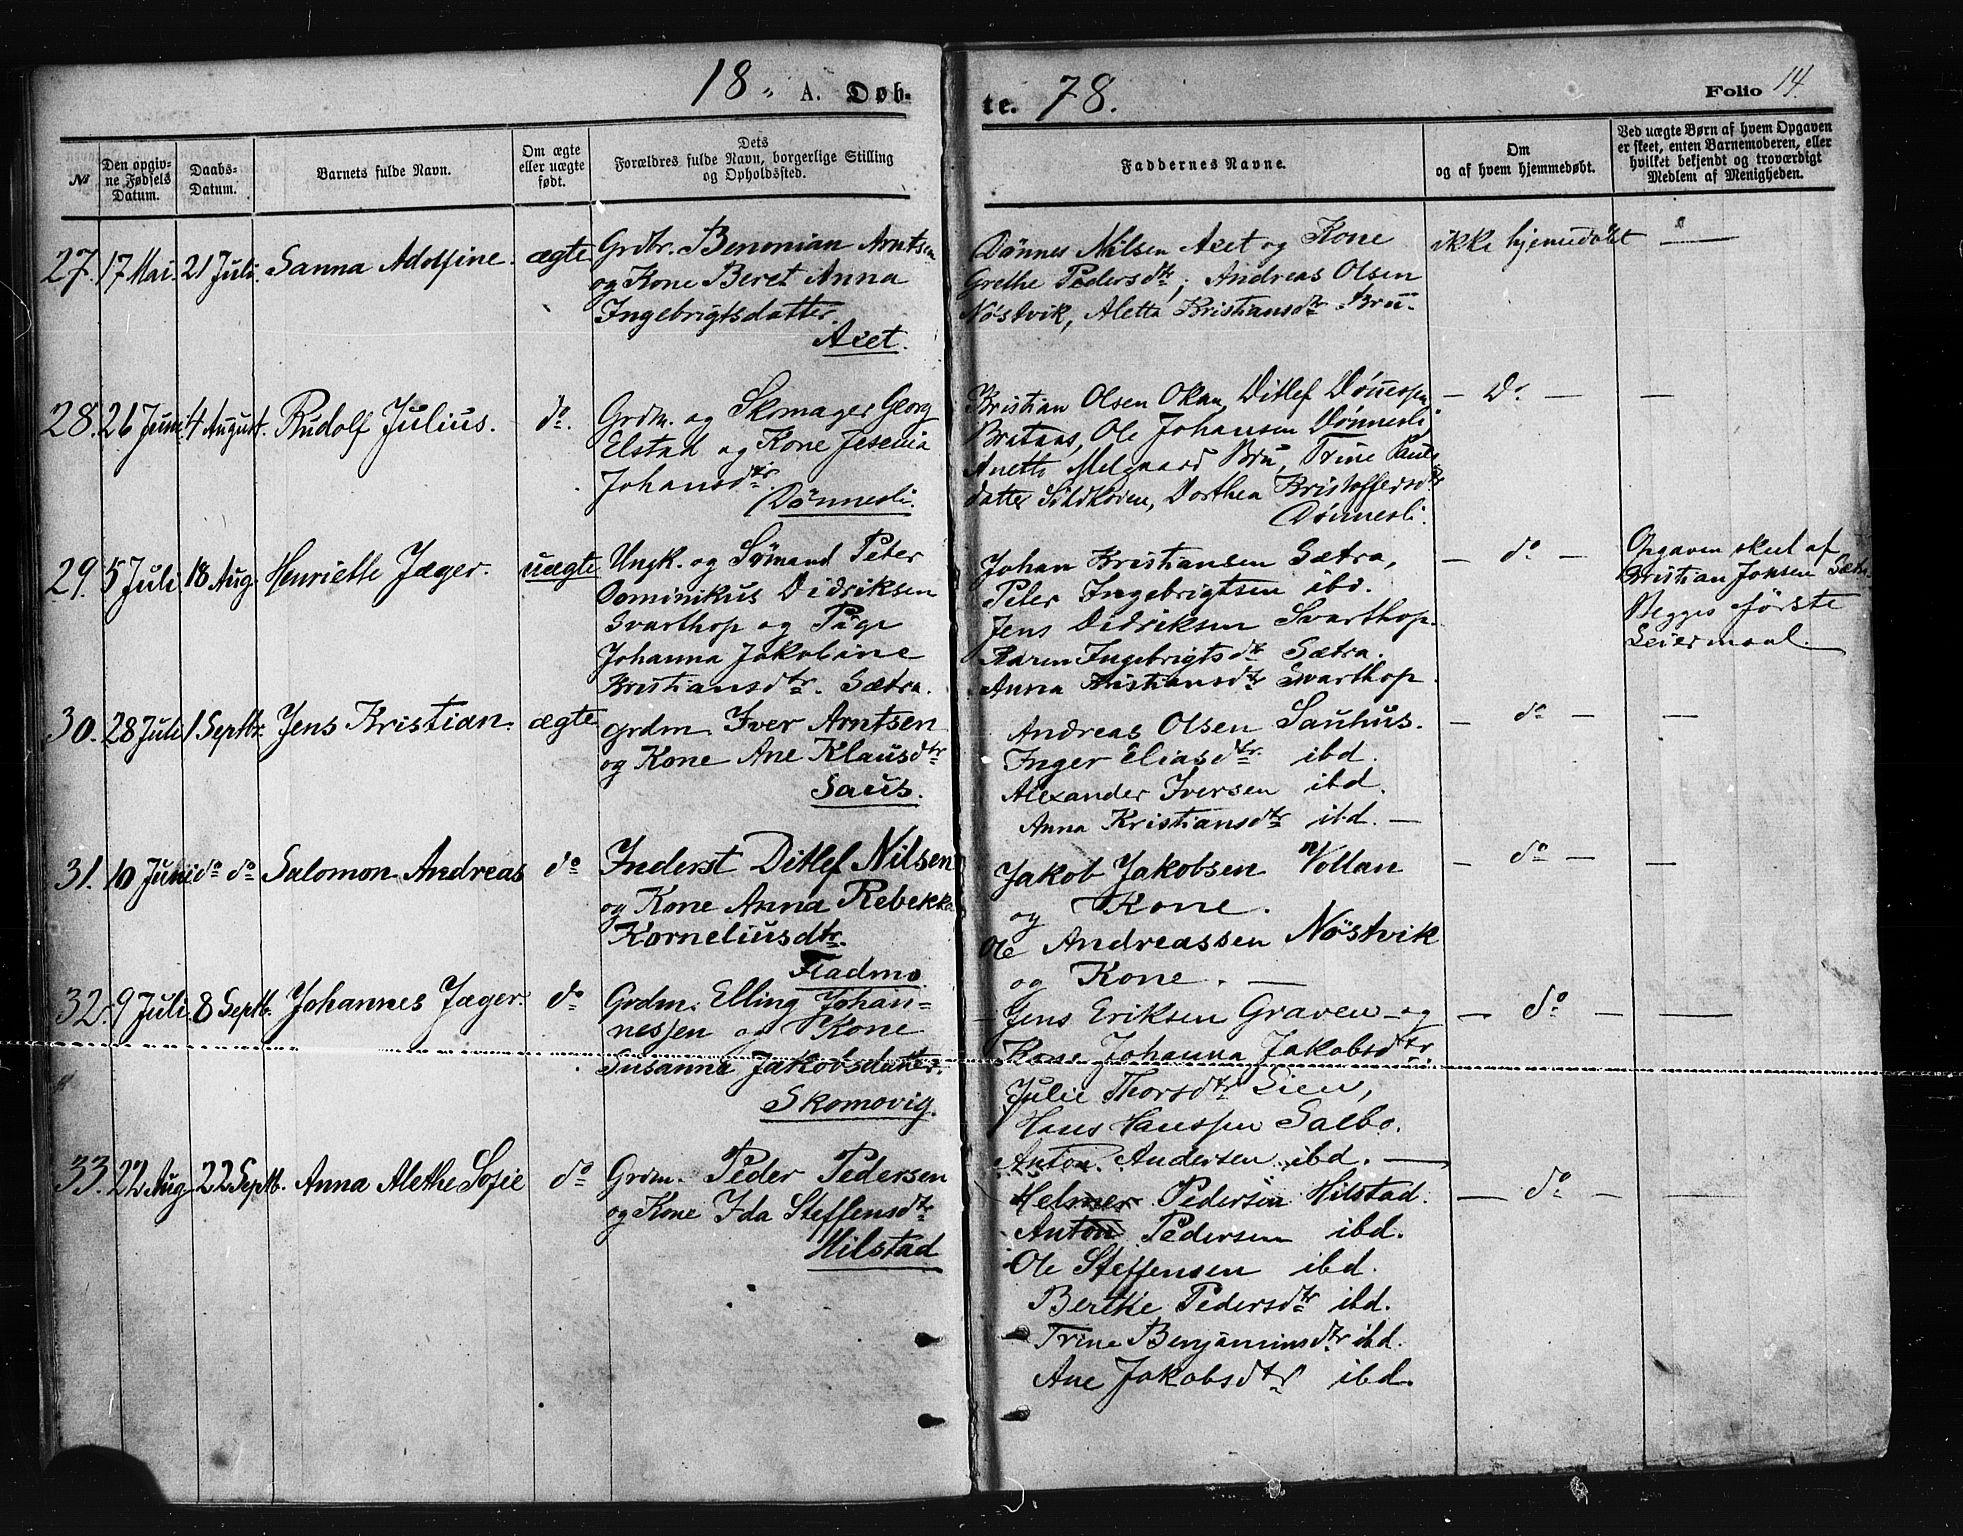 18 A. Døbte. 78. Folio 14.
№
Den opgivne Fødsels Datum.
Daabs-Datum.
Barnets fulde Navn.
Om ægte eller uægte født.
Dets Forældres fulde Navn, borgerlige Stilling og Opholdssted.
Faddernes Navne.
Om og af hvem hjemmedøbt.
Ved uægte Børn af hvem Opgaven er skeet, enten Barnemoderen, eller hvilket bekjendt og troværdigt Medlem af Menigheden.
27. 17 Mai. 21 Juli. Sanna Adolfine. ægte
Grdbr. Benonian Arntsen
og Kone Beret Anna
Ingebrigtsdatter.
Aået.
Dønnes Nilsen Aaet og Kone
Grethe Pedersdtr, Andreas Olsen
Nøstvik, Aletta Kristiansdtr Bru.
ikke hjemmedøbt —
28. 26 Juni 4 August. Rudolf Julius. do.
Grdm. og Skomager Georg
Elstad og Kone Jesenia
Johansdtr.
Dønnesli.
Kristian Olsen Okan, Ditlef
Brataas, Ole Johansen Dønnesli,
Anette Melgaard Bru, Trine Pauls
datter Dorthea Kristoffersdtr
Dønnesli.
— Do — —
29. 5 Juli 18 Aug. Henriette Jæger. uægte
Ungk. og Sømand Peter
Dominikus Didriksen
Svarthop og Pige
Johanna Jakobine
Kristiansdtr. Sætra.
Johan Kristiansen Sætra,
Peter Ingebrigtsen ibd.
Jens Didriksen Svarthop.
Karen Ingebrigtsdtr Sætra.
Anna Kristiansdtr Svarthop.
— do —
Opgaven skeet af
Kristian Jonsen Sætra
Begges første
Leiermaal.
30. 28 Juli 1 Septbr. Jens Kristian. ægte
grdm. Iver Arntsen
og Kone Ane Klausdtr
Saus.
Andreas Olsen Sauhus.
Inger Eliasdtr. ibd.
Alexander Iversen ibd.
Anna Kristiansdtr ibd. —
— do — —
31. 10 Juni do do Salomon Andreas do
Inderst Ditlef Nilsen
og Kone Anna Rebekka
Korneliusdtr.
Fladmo
Jakob Jakobsen Vollan
og Kone.
Ole Andreassen Nøstvik
og Kone. —
— do — —
32. 9 Juli 8 Septb. Johannes Jæger. do
Grdm. Elling Johan=
nessen og Kone
Susanna Jakobsdatter.
Skomovig.
— Jens Eriksen Graven og
Kone Johanna Jakobsdtr.
Julie Thorsdtr Lien,
Hans Hanssen Salbo.
Anton Andersen ibd. —
— do — —
33. 22 Aug 22 Septb. Anna Alethe Sofie do
Grdm. Peder Pedersen
og Kone Ida Steffensdtr
Hilstad
Helmer Pedersen Hilstad.
Anton Pedersen ibd.
Ole Steffensen ibd.
Berthe Pedersdtr ibd.
Trine Benjaminsdtr ibd.
Ane Jakobsdtr ibd.
— do — —